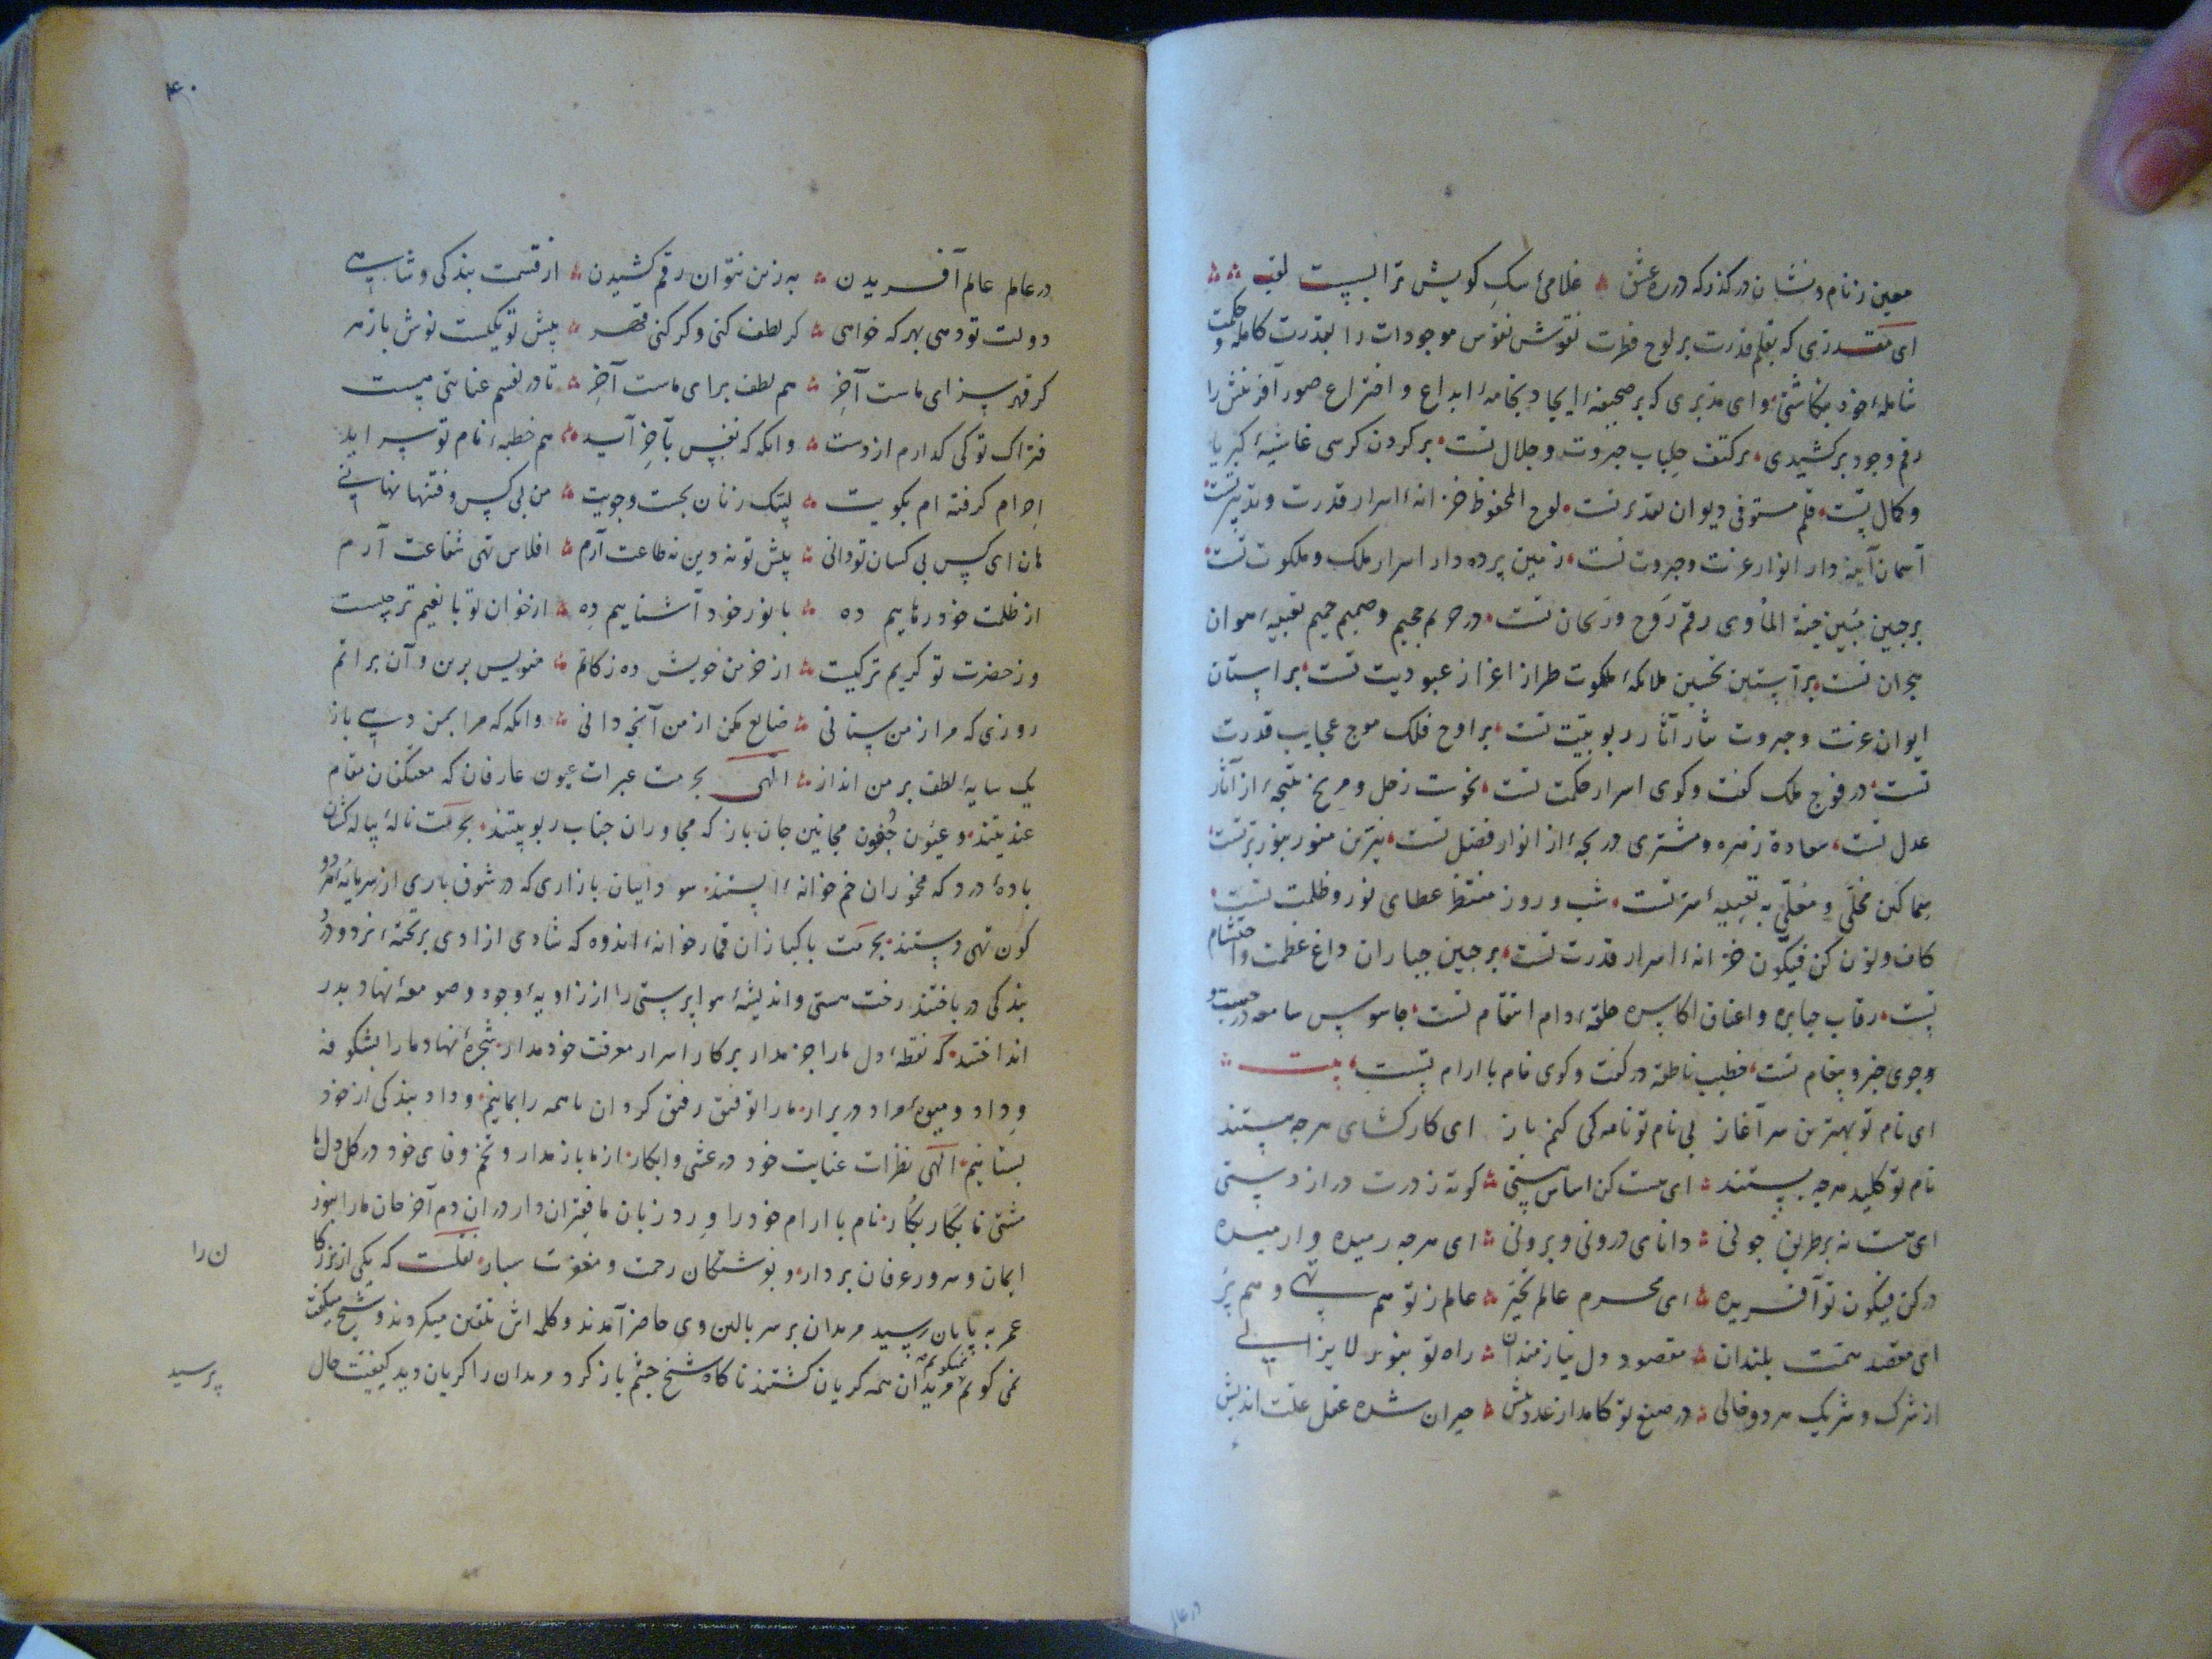 معین ز نام و نشان در گذر که در ره عشق غلامئ سگِ کویش ترا بسست لقب
ای مقدری که بقلم قدرت بر لوح فطرت نقوش نفوس موجودات را بقدرت کامله و حکمت
شاملهٔ خود نگاشتی وای مدبری که بر صحیفهٔ ایجاد بخامهٔ ابداع و اختراع صور آفرینش را
رقم وجود برکشیدی برکتف جلباب جبروت و جلال تست بر کردن کرسی غاشیهٔ کبریا
و کمال تست قلم مستوفی دیوان تقدیر تست لوح المحفوظ خزانهٔ اسرار قدرت و تدبیر تست
آسمان آینه دار انوار عزت و جبروت تست زمین پرده دار اسرار ملک و ملکوت تست
بر جبین مبین جنة المأوی رقم رَوح و ریحان تست در جحیم و صمیم حمیم تعبیهٔ هوان
هجران تست بر آستین تحسین ملائکهٔ ملکوت طراز اعزاز عبودیت تست بر آستان
ایوان عزت و جبروت نثار آثار ربوبیّت تست بر اوج فلک موج عجایب قدرت
تست در فوج ملک گفت و کوی اسرار حکمت تست نحوست زحل و مریخ نتیجهٔ از آثار
عدل تست سعادة زهره و مشتری دریچهٔ از انوار فضل تست نیّرین منور بنور برتست
سماکین محلّی و معلّی به تعبیهٔ سرّ تست شب و روز منتظر عطای نور و ظلمت تست
کاف و نون کن فیکون خزانهٔ اسرار قدرت تست بر جبین جباران داغ عظمت و احتشام
تست رقاب جبابره و اعناق اکاسره حلقهٔ دام انتقام تست جاسوس سامعه در جست و
وجوی خبر و پیغام تست خطیب ناطقه در گفت و کوی نام با ارام تست بیت
ای نام تو بهترین سرآغاز بی نام تو نامه کی کنم باز ای کارکشای هرچه هستند
نام تو کلید هرچه بستند ای هست کن اساس هستی کوته ز درت دراز دستی
ای هست نه بر طریق چونی دانای درونی و برونی ای هرچه رمیده وارمیده
در کن فیکون تو آفریده ای محرم عالم تحیّر عالم ز تو هم تهی و هم پُر
ای مقصد همت بلندان مقصود دل نیازمندان راه تو بنور لایزالی
از شرک و شریک هر دو خالی در صنع تو کامد از عدد بیش حیران شده عقل علّت اندیش
در عالم
۴۰
در عالم عالم آفریدن به زین نتوان رقم کشیدن از قسمت بندکی و شاهی
دولت تو دهی بهر که خواهی کر لطف کنی و کر کنی قهر پیش تو یکیست نوش با زهر
کر قهر سزای ماست آخر هم لطف برای ماست آخر تا در نفسم عنایتی هست
فتراک تو کی کذارم از دست وانکه که نفس بآخر آید هم خطبهٔ نام تو سراید
احرام کرفته ام بکویت لبیک زنان بجست وجویت من بی کس و فتنها نهانی
هان ای کس بی کسان تو دانی پیش تو نه دین نه طاعت آرم افلاس تهی شفاعت آرم
از ظلمت خود رهاییم ده با نور خود آشناییم دِه از خوان تو با نعیم تر چیست
وز حضرت تو کریم تر کیست از خرمن خویش ده زکاتم منویس برین و آن براتم
روزی که مرا ز من ستانی ضایع مکن از من آنچه دانی وانکه که مرا بمن دهی باز
یک سایهٔ لطف بر من انداز الهی بحرمت عبرات عیون عارفان که معتکفان مقام
عندیتند و عیون جُفون مجانین جان باز که مجاوران جناب ربوبیتند بحرمت نالهٔ پیاله کشان
بادهٔ درد که مخموران خم خوانهٔ الستند سوداییان بازاری که در شوق باری از سرمایهٔ هر دو
کون تهی دستند بحرمت پاکبازان قمارخوانهٔ اندوه که شادی ازادی بر تختهٔ نرد درد
بندکی درباختند رخت هستی و اندیشهٔ هواپرستی را از زاویهٔ وجود و صومعهٔ نهاد بدر
انداختند که نقطهٔ دل ما را جز مدار پرکار اسرار معرفت خود مدار شجرهٔ نهاد ما را بشکوفه
وِداد و میوهٔ مراد در بر ار ما را توفیق رفیق کردان تا همه را بمانیم و داد بندکی از خود
بستانیم الهی نظرات عنایت خود در عشی و ابکار از ما باز مدار و تخم وفای خود در کل دلها
مشتی نابکار بکار نام با ارام خود را وِرد زبان ما فقیران دار در ان دم آخر جان ما را بنور
ایمان و سرور عرفان بردار و بنوشتکان رحمت و مغفرت سپار نقلست که یکی از بزرکا ن را
عمر به پایان رسید مریدان بر سر بالین وی حاضر آمدند و کلمه اش تلقین میکردند و شیخ میکفت
نمی کویم نمیکویم مریدان همه کریان کشتند ناکاه شیخ چشم باز کرد و مریدان را کریان دید کیفیّت حال پرسید